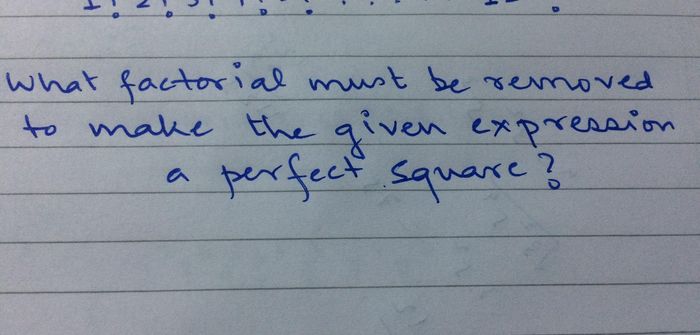 What factorial must be removed
to make the given expression
a perfect square?